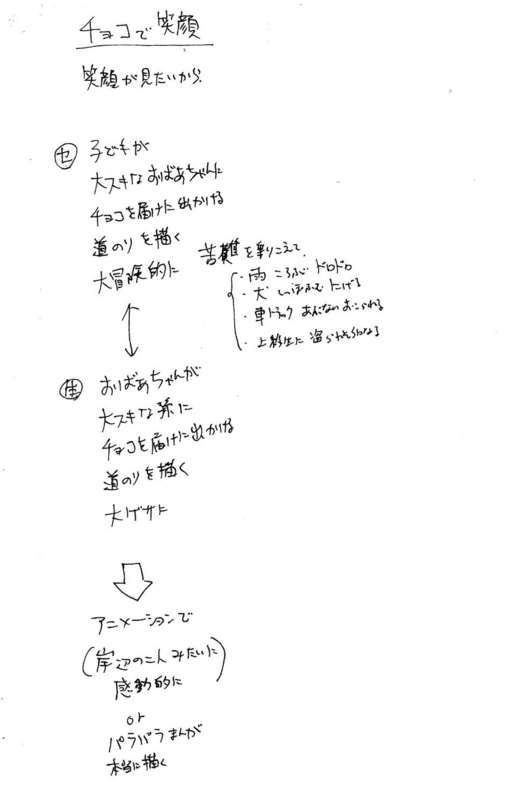 チョコで笑顔
笑顔が見たいから
㋝ 子どもが
大スキなおばあちゃんに
チョコを届けに出かける
道のりを描く
大冒険的に
苦難を乗りこえて、
・雨 ころぶ ドロドロ
・犬 しっぽふむ にげる
・車トラック あぶない おこられる
・上級生に 盗られそうになる
おばあちゃんが
大スキな孫に
チョコを届けに出かける
道のりを描く
大ゲサに
アニメーションで
(岸辺のこ人みたいに
感動的に)
or
パラパラまんが
本当に描く